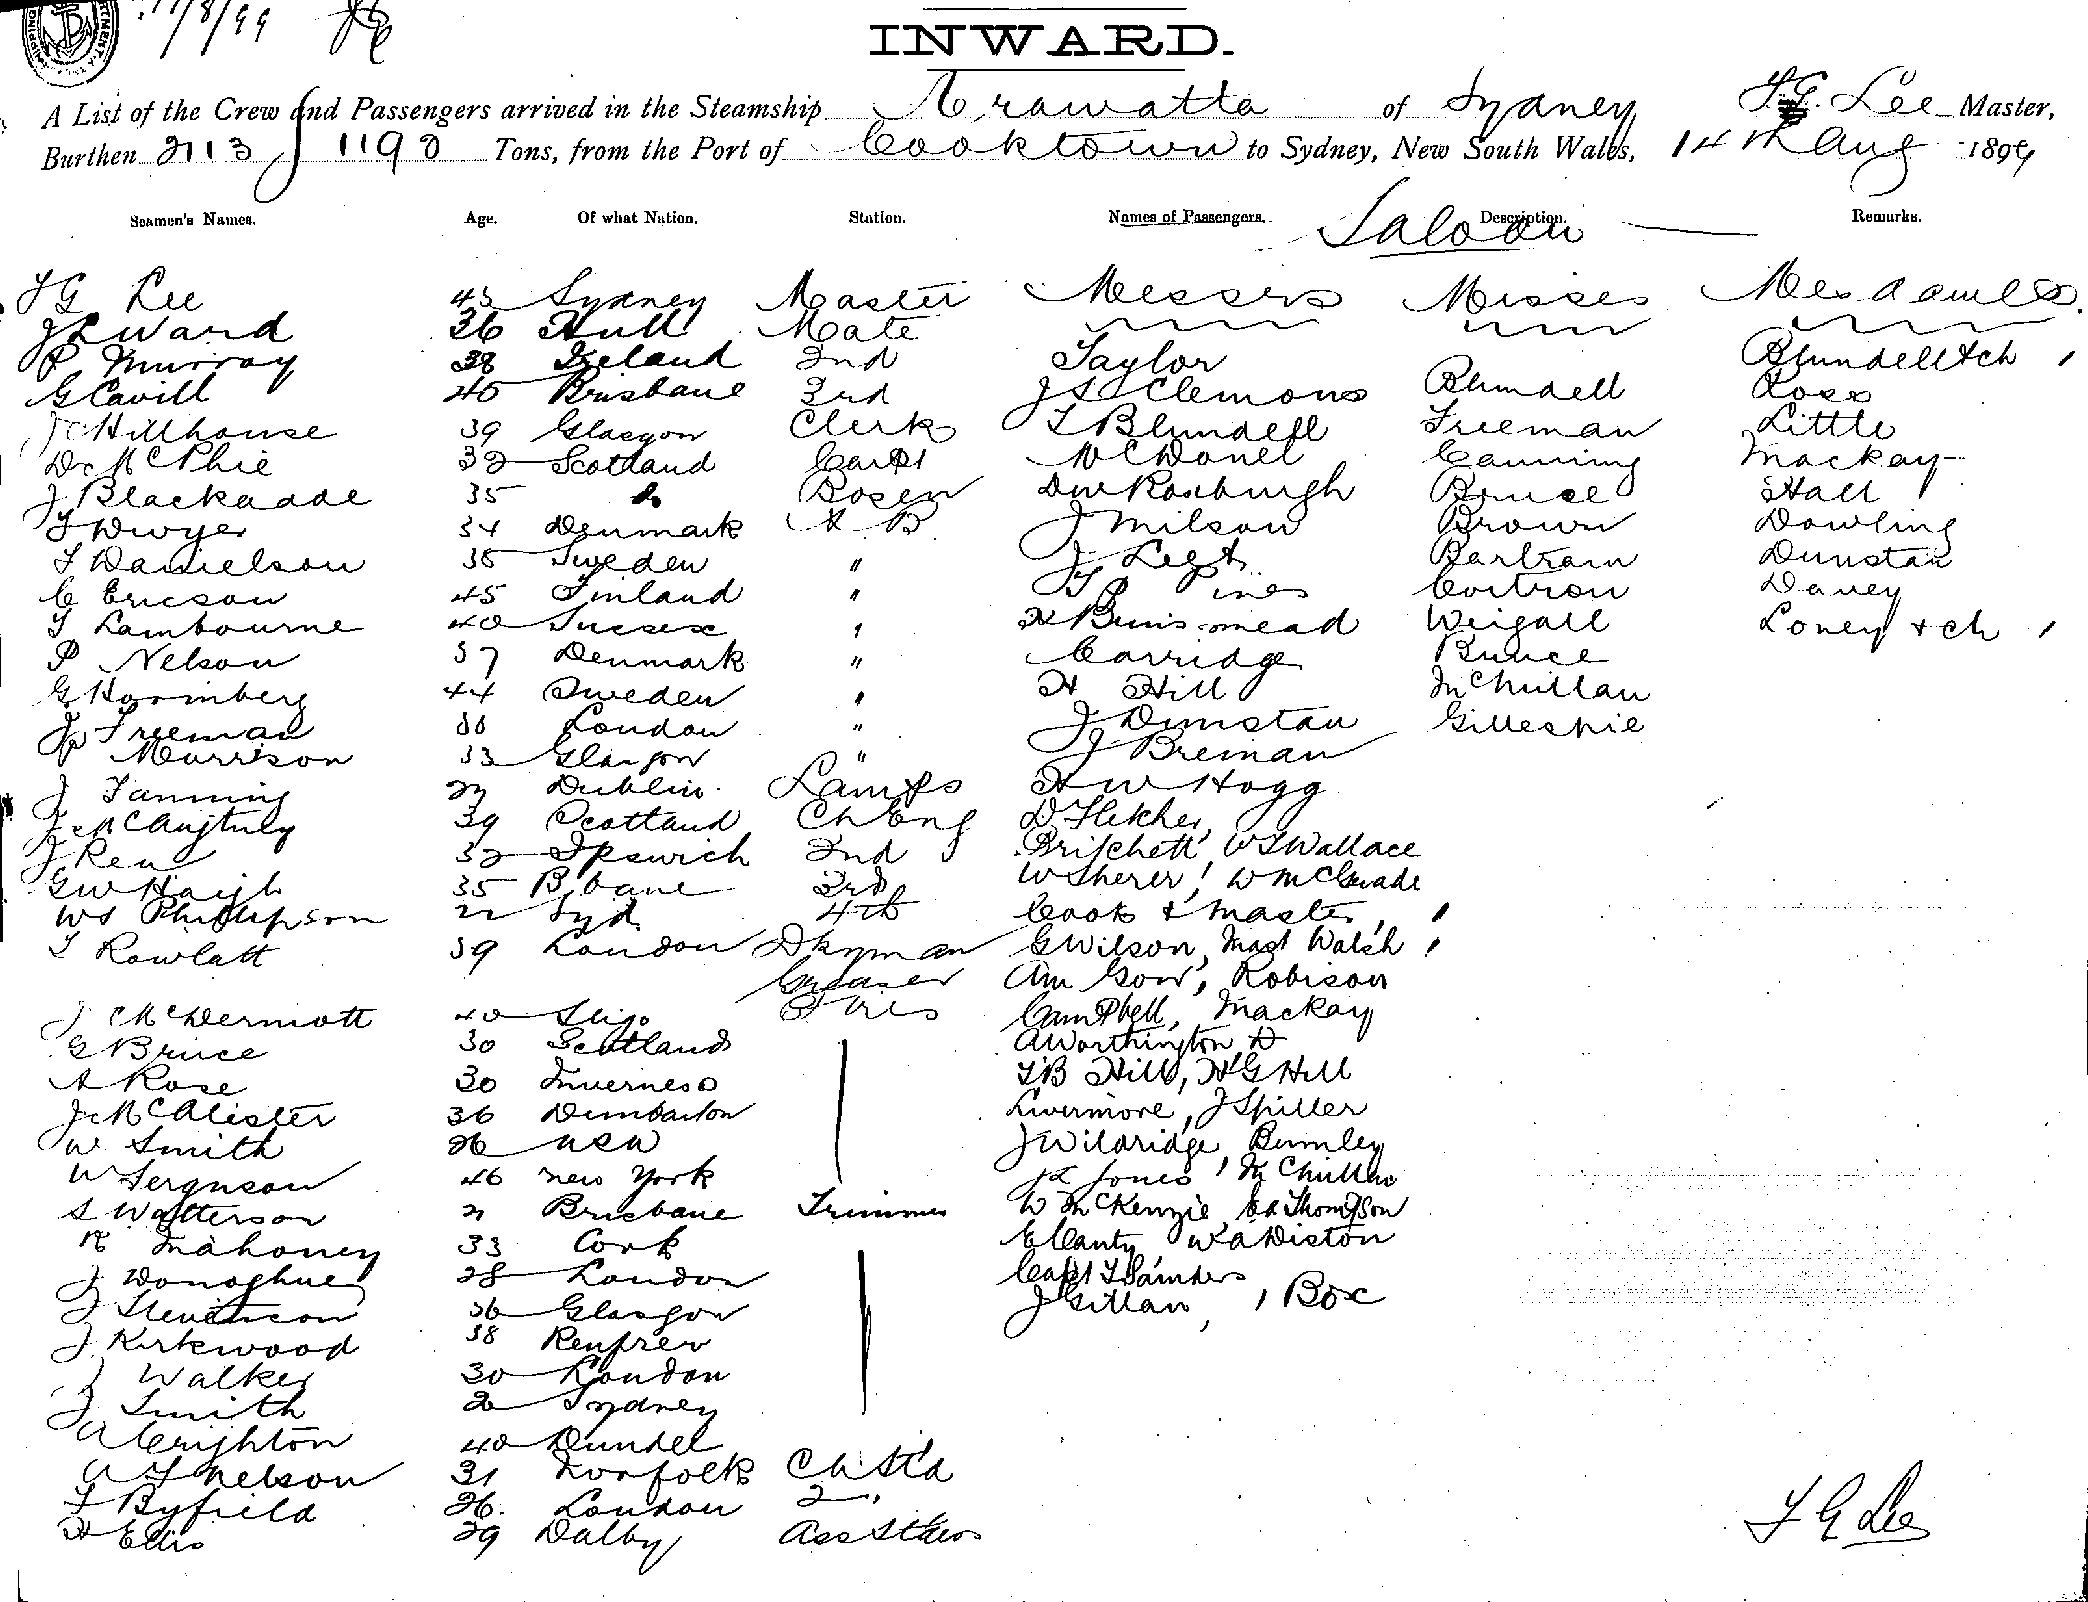 17/8/99
INWARD.
A List of the Crew and Passengers arrived in the Steamship Arawatta of Sydney T.G. Lee Master,
Burthen 2113 / 1190 Tons, from the Port of Cooktown to Sydney, New South Wales, 14th Aug 1899
Seamen's Names. Age. Of what Nation. Station. Names of Passengers. Description. Remarks.
Saloon
T G Lee 43 Sydney Master Messrs Misses Mesdames
J L Ward 36 Hull Mate
P Murray 38 Ireland 2nd Taylor Blundell & ch 1
G Cavill 40 Brisbane 3rd J S Clemons Blundell Ross
J C Hillhouse 39 Glasgow Clerk T Blundell Freeman Little
D McPhie 32 Scotland Carpt McDonel Canning Mackay
J Blackadde 35 do Bosen D W Roxburgh Bruce Hall
T Dwyer 34 Denmark A B J Milson Brown Dowling
T Danielson 35 Sweden " J Bartram Dunstan
C Ericson 45 Finland " Davey
T Lambourne 40 Sussex " Weigall Loney & ch 1
P Nelson 37 Denmark " Carridge Bunce
G Hormberg 44 Sweden " H Hill McMillan
J Freeman London " J Dunstan Gillespie
P Morrison 33 Glasgow " J Brennan
J Fanning Dublin Lamps H W Hogg
J 39 Scotland Ch Eng D Fletcher
J Ren 32 Ipswich 2nd Pritchett W T Wallace
G W Haigh 35 B'bane 3rd W Sherer W
W S Phillipson 22 Syd 4th Cook & Master, 1
T Rowlatt 39 London Dkyman G Wilson, Mast Walsh 1
Greaser Gow, Robison
J McDermott 40 Sligo Fires Campbell, Mackay
G Bruce 30 Scotland A Worthington D
A Rose 30 Inverness T B Hill, H G Hill
J McAlister 36 Dumbarton Livermore, J Spiller
W Smith 26 USA J Wildridge, Bumley
W Ferguson 46 New York Jones
S Watterson 21 Brisbane Trimmer W McKenzie, Thompson
R Mahoney 33 Cork E Canty, W A Diston
J Donoghue 28 London Capt T Saunders
J Stevenson 36 Glasgow J Gillan, 1 Box
J Kirkwood 38 Renfrew
J Walker 30 London
J Smith Sydney
A Crighton 40 Dundee
A T Nelson 31 Norfolk Ch Std
T Byfield 26. London 2 "
H Ellis 29 Dalby Ass Stew
T G Lee